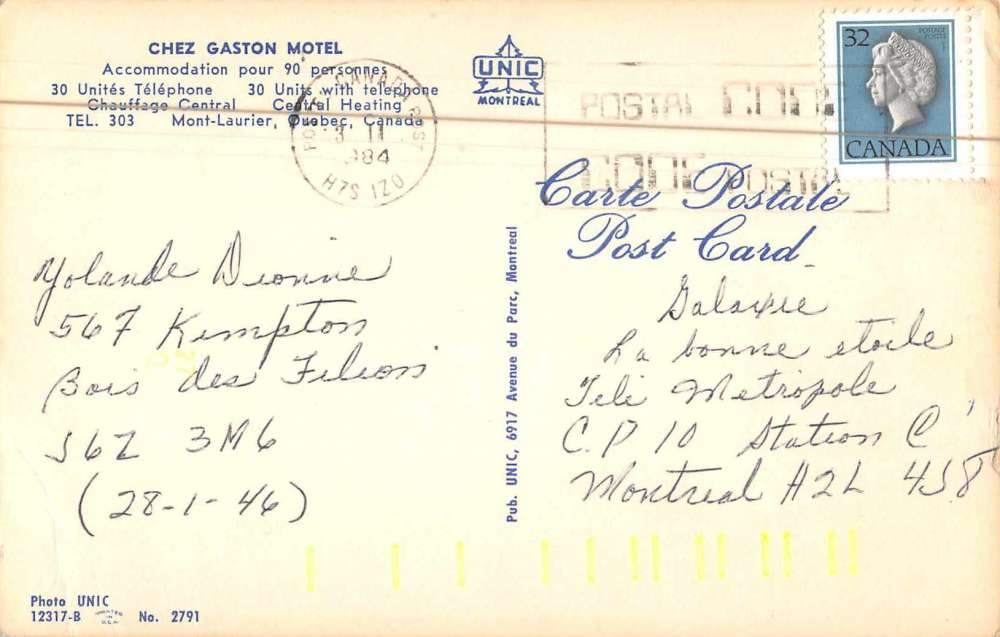 CHEZ GASTON MOTEL
Accommodation pour 90 personnes
30 Unités Téléphone 30 Units with telephone
Chauffage Central Central Heating
TEL. 303 Mont-Laurier, Quebec, Canada
UNIC
MONTREAL
CANADA POST
POSTES
3 II
1984
H7S 1Z0
POSTAL CODE
CODE POSTAL
32
POSTAGE
POSTES
CANADA
Carte Postale
Post Card
Yolande Dionne
567 Kimpton
Bois des Filion
J6Z 3M6
(28-1-46)
Pub. UNIC, 6917 Avenue du Parc, Montreal
Galaxie
La bonne etoile
Tele Metropole
C.P 10 Station C
Montreal H2L 4J8
Photo UNIC
12317-B PRINTED IN U.S.A. No. 2791